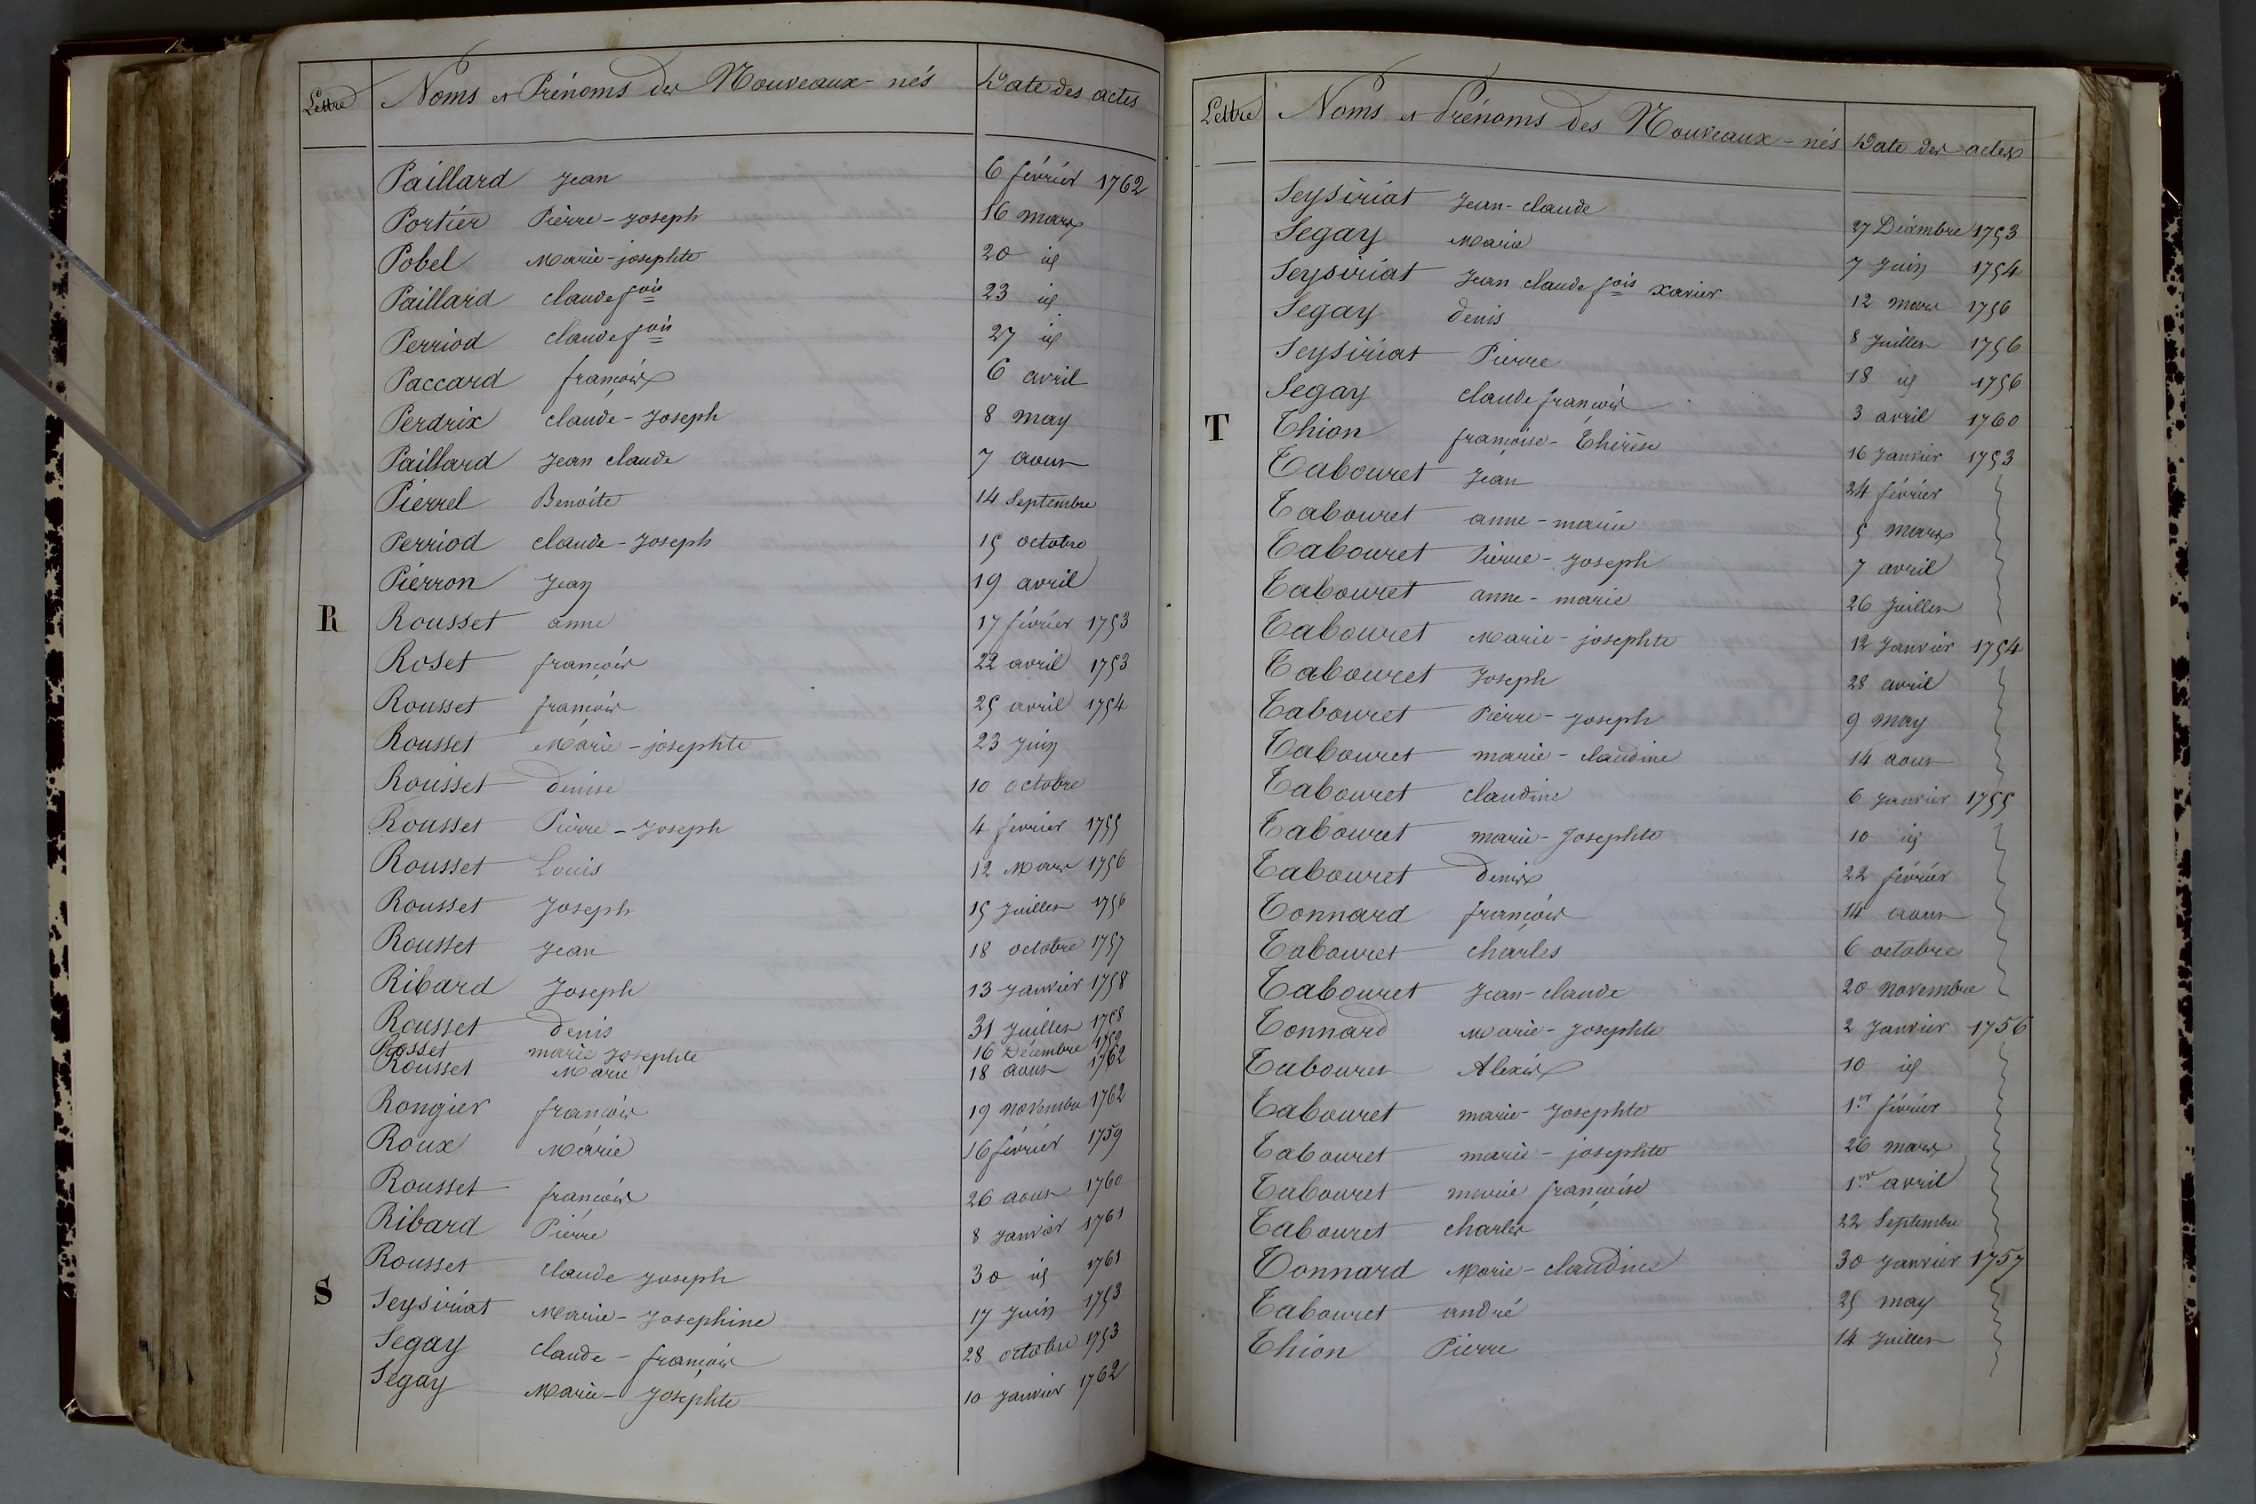 Lettre Noms et Prénoms des Nouveaux-nés Date des actes
Paillard Jean 6 février 1762
Portier Pierre-Joseph 16 mars
Pobel Marie-josephte 20 id
Paillard claude fois 23 id
Perriod claude fois 27 id
Paccard françois 6 avril
Perdrix claude-Joseph 8 may
Paillard Jean claude 7 aout
Pierrel Benoite 14 Septembre
Perriod claude-Joseph 15 octobre
Pierron Jean 19 avril
R Rousset anne 17 février 1753
Roset françois 22 avril 1753
Rousset françois 25 avril 1754
Rousset Marie-josephte 23 Juin
Rousset denise 10 octobre
Rousset Pierre-Joseph 4 février 1755
Rousset Louis 12 Mars 1756
Rousset Joseph 15 Juillet 1756
Rousset Jean 18 octobre 1757
Ribard Joseph 13 Janvier 1758
Rousset denis 31 Juillet 1758
Rosset marie Josephte 16 Décembre 1759
Rousset Marie 18 aout 1762
Rongier françois 19 novembre 1762
Roux Marie 16 février 1759
Rousset françois 26 aout 1760
Ribard Pierre 8 Janvier 1761
Rousset claude Joseph 30 id 1761
S Seysiriat Marie-Josephine 17 Juin 1753
Segay claude-françois 28 octobre 1753
Segay Marie-Josephte 10 Janvier 1762
Lettre Noms et Prénoms des Nouveaux-nés Date des actes
Seysiriat Jean-claude 27 Décembre 1753
Segay Marie 7 Juin 1754
Seysiriat Jean claude fois xavier 12 mars 1756
Segay denis 8 Juillet 1756
Seysiriat Pierre 18 id 1756
Segay claude françois 3 avril 1760
T Thion françoise-Thérèse 16 Janvier 1753
Tabouret Jean 24 février
Tabouret anne-marie 5 mars
Tabouret Pierre-Joseph 7 avril
Tabouret anne-marie 26 Juillet
Tabouret Marie-josephte 12 Janvier 1754
Tabouret Joseph 28 avril
Tabouret Pierre-Joseph 9 may
Tabouret marie-claudine 14 aout
Tabouret claudine 6 Janvier 1755
Tabouret marie-Josephte 10 id
Tabouret denis 22 février
Tonnard françois 14 aout
Tabouret charles 6 octobre
Tabouret Jean-claude 20 novembre
Tonnard Marie-Josephte 2 Janvier 1756
Tabouret Alexis 10 id
Tabouret marie-Josephte 1er février
Tabouret marie-josephte 26 mars
Tabouret marie françoise 1er avril
Tabouret charles 22 Septembre
Tonnard Marie-claudine 30 Janvier 1757
Tabouret andré 25 may
Thion Pierre 14 Juillet